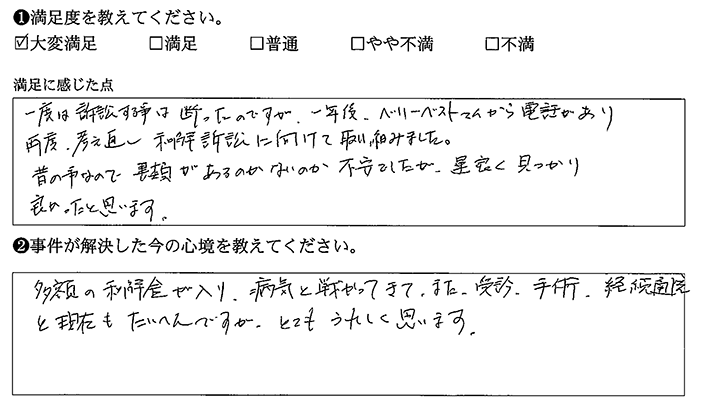 ❶満足度を教えてください。
☑大変満足 □満足 □普通 □やや不満 □不満
満足に感じた点
一度は訴訟する事は断ったのですが、一年後、ベリーベストさんから電話があり
再度、考え返し 和解訴訟に向けて取り組みました。
昔の事なので 書類があるのかないのか 不安でしたが、星良く 見つかり
良かったと思います。
❷事件が解決した今の心境を教えてください。
多額の和解金が入り、病気と戦かってきて、また、受診、手術、経続通院
と現在も たいへんですが、とても うれしく思います。